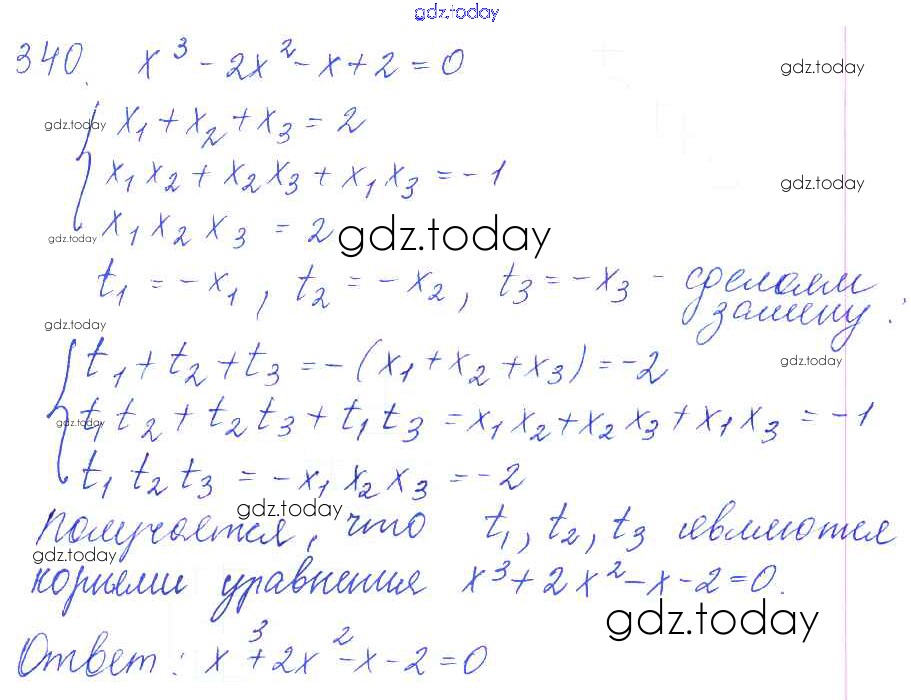 gdz.today
340. x³ - 2x² - x + 2 = 0
gdz.today
gdz.today
x₁ + x₂ + x₃ = 2
x₁x₂ + x₂x₃ + x₁x₃ = -1
gdz.today
gdz.today
x₁x₂x₃ = 2
gdz.today
t₁ = -x₁, t₂ = -x₂, t₃ = -x₃ - сделаем
замену:
gdz.today
t₁ + t₂ + t₃ = -(x₁ + x₂ + x₃) = -2
gdz.today
gdz.today
t₁t₂ + t₂t₃ + t₁t₃ = x₁x₂ + x₂x₃ + x₁x₃ = -1
t₁t₂t₃ = -x₁x₂x₃ = -2
gdz.today
Получается, что t₁, t₂, t₃ являются
gdz.today
корнями уравнения x³ + 2x² - x - 2 = 0.
gdz.today
Ответ: x³ + 2x² - x - 2 = 0